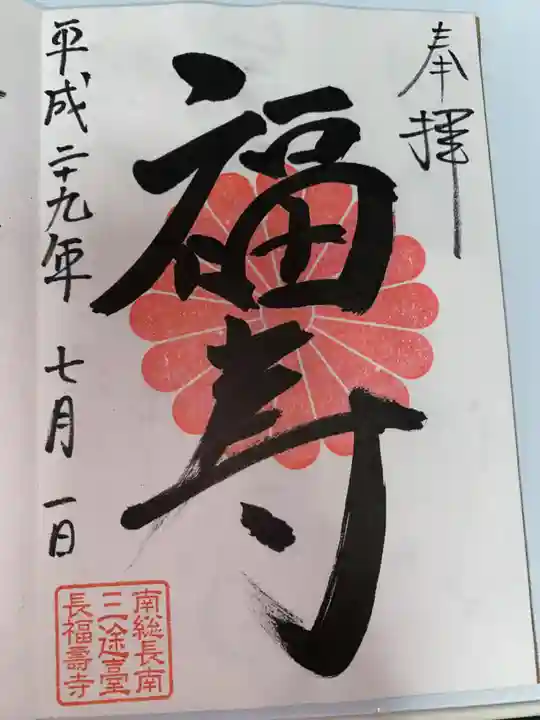 奉拝
福寿
平成二十九年七月一日
南総長南
三途臺
長福壽寺